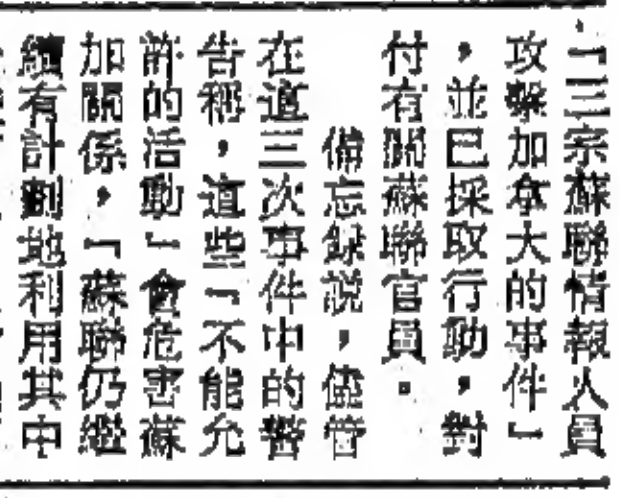 「三宗蘇聯情報人員
攻擊加拿大的事件」
，並已採取行動，對
付有關蘇聯官員。
備忘録説，儘管
在這三次事件中的警
告稱，這些「不能允
許的活動」會危害蘇
加關係，「蘇聯仍繼
續有計劃地利用其中